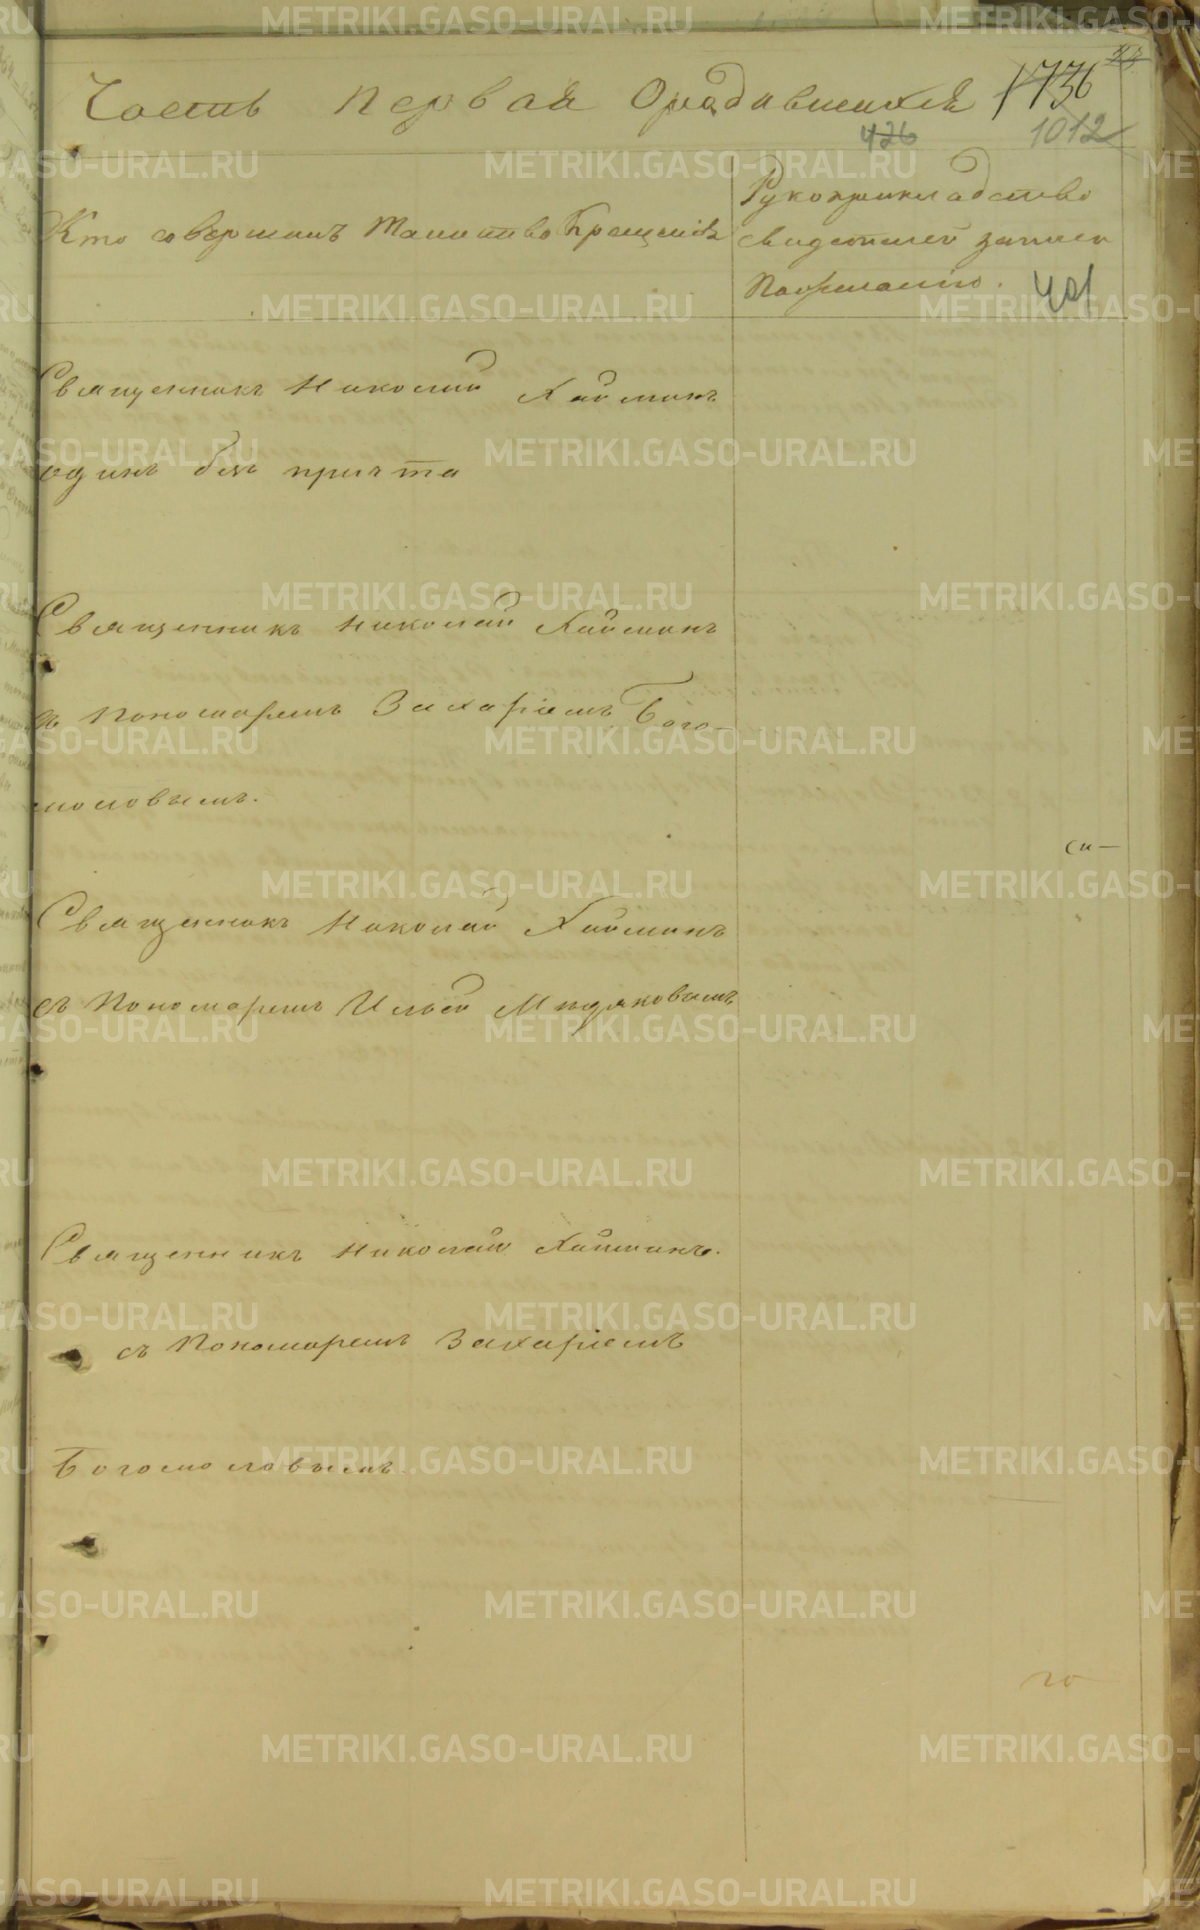 Часть первая О родившихся 1736
426 1012
Кто совершалъ Таинство Крещенія
Рукоприкладство
свидетелей записи
По желанію. 401
Священникъ Николай Хайминъ
одинъ безъ причта
Священникъ Николай Хайминъ
съ Пономаремъ Захаріемъ Бого-
моловымъ.
Священникъ Николай Хайминъ
съ Пономаремъ Ильей Мидяковымъ
Священникъ Николай Хайминъ.
съ Пономаремъ Захаріемъ
Богомоловымъ.
METRIKI.GASO-URAL.RU